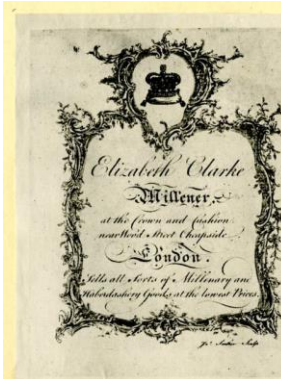 Elizabeth Clarke
Millener,
at the Crown and Cushion
near Wood Street Cheapside
London.
Sells all Sorts of Millenary and
Haberdashery Goods at the lowest Prices.
Sculp